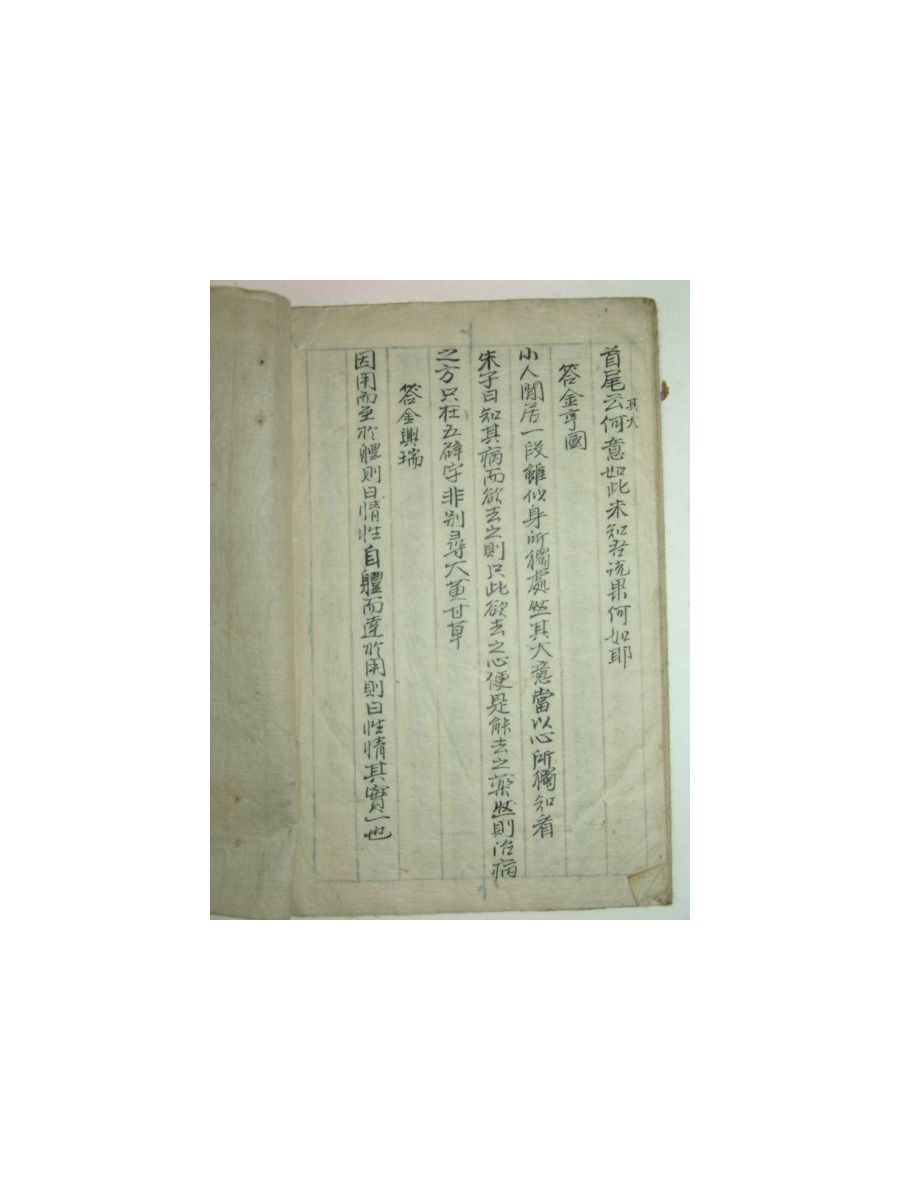 首尾云何其大意如此未知吾说果何如耶
答金亨國
小人閒居一段雖似身所獨處然其大意當以心所獨知看
朱子曰知其病而欲去之則只此欲去之心便是能去之藥然則治病
之方只在五辟字非別尋大黃甘草
答金興瑞
因用而至於體則曰情性自體而達於用則曰性情其實一也